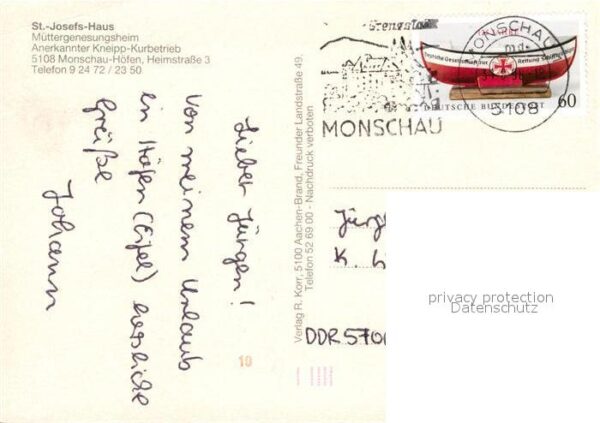 St.-Josefs-Haus
Müttergenesungsheim
Anerkannter Kneipp-Kurbetrieb
5108 Monschau-Höfen, Heimstraße 3
Telefon 9 24 72 / 23 50
Lieber Jürgen!
Von meinem Urlaub
in Höfen (Eifel) herzliche
Grüße
Johann
Verlag R. Korr, 5100 Aachen-Brand, Freunder Landstraße 49.
Telefon 52 69 00 - Nachdruck verboten
MONSCHAU
MONSCHAU
5108
Deutsche Gesellschaft zur Rettung Schiffbrüchiger
DEUTSCHE BUNDESPOST
60
Jürg
K
DDR 570
privacy protection
Datenschutz
19